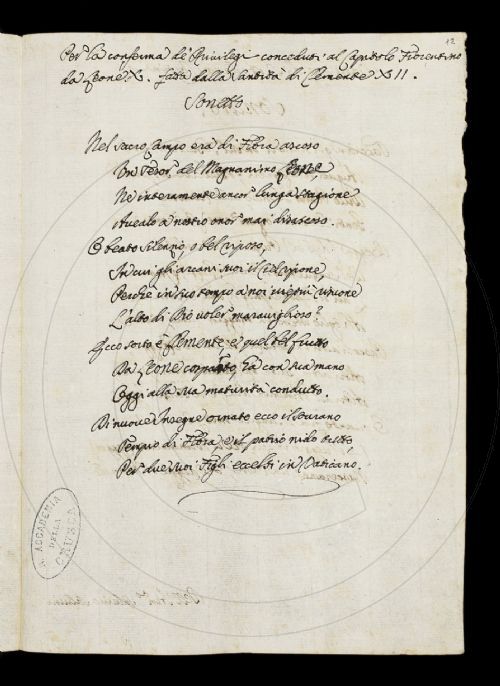 12
Per la conferma de' Privilegi conceduti al Capitolo Fiorentino
da Leone X. fatta dalla Santità di Clemente XII.
Sonetto.
Nel sacro campo era di Flora ascoso
Un Tesor del Magnanimo Leone,
Nè interamente ancor lunga stagione
Avealo a nostro onor mai disascoso.
O beato silenzio, o bel riposo,
In cui gli arcani suoi il Ciel ripone,
Perchè in suo tempo a noi
L'alto di Dio voler maraviglioso!
Ecco sorto è Clemente, e quel bel frutto
Da Leone, ha con sua mano
Oggi alla sua maturità condutto.
Di nuove Insegne ornato ecco il sovrano
Tempio di Flora, e il patrio nido tutto
Per due suoi Figli eccelsi in Vaticano.
ACCADEMIA
DELLA
CRUSCA